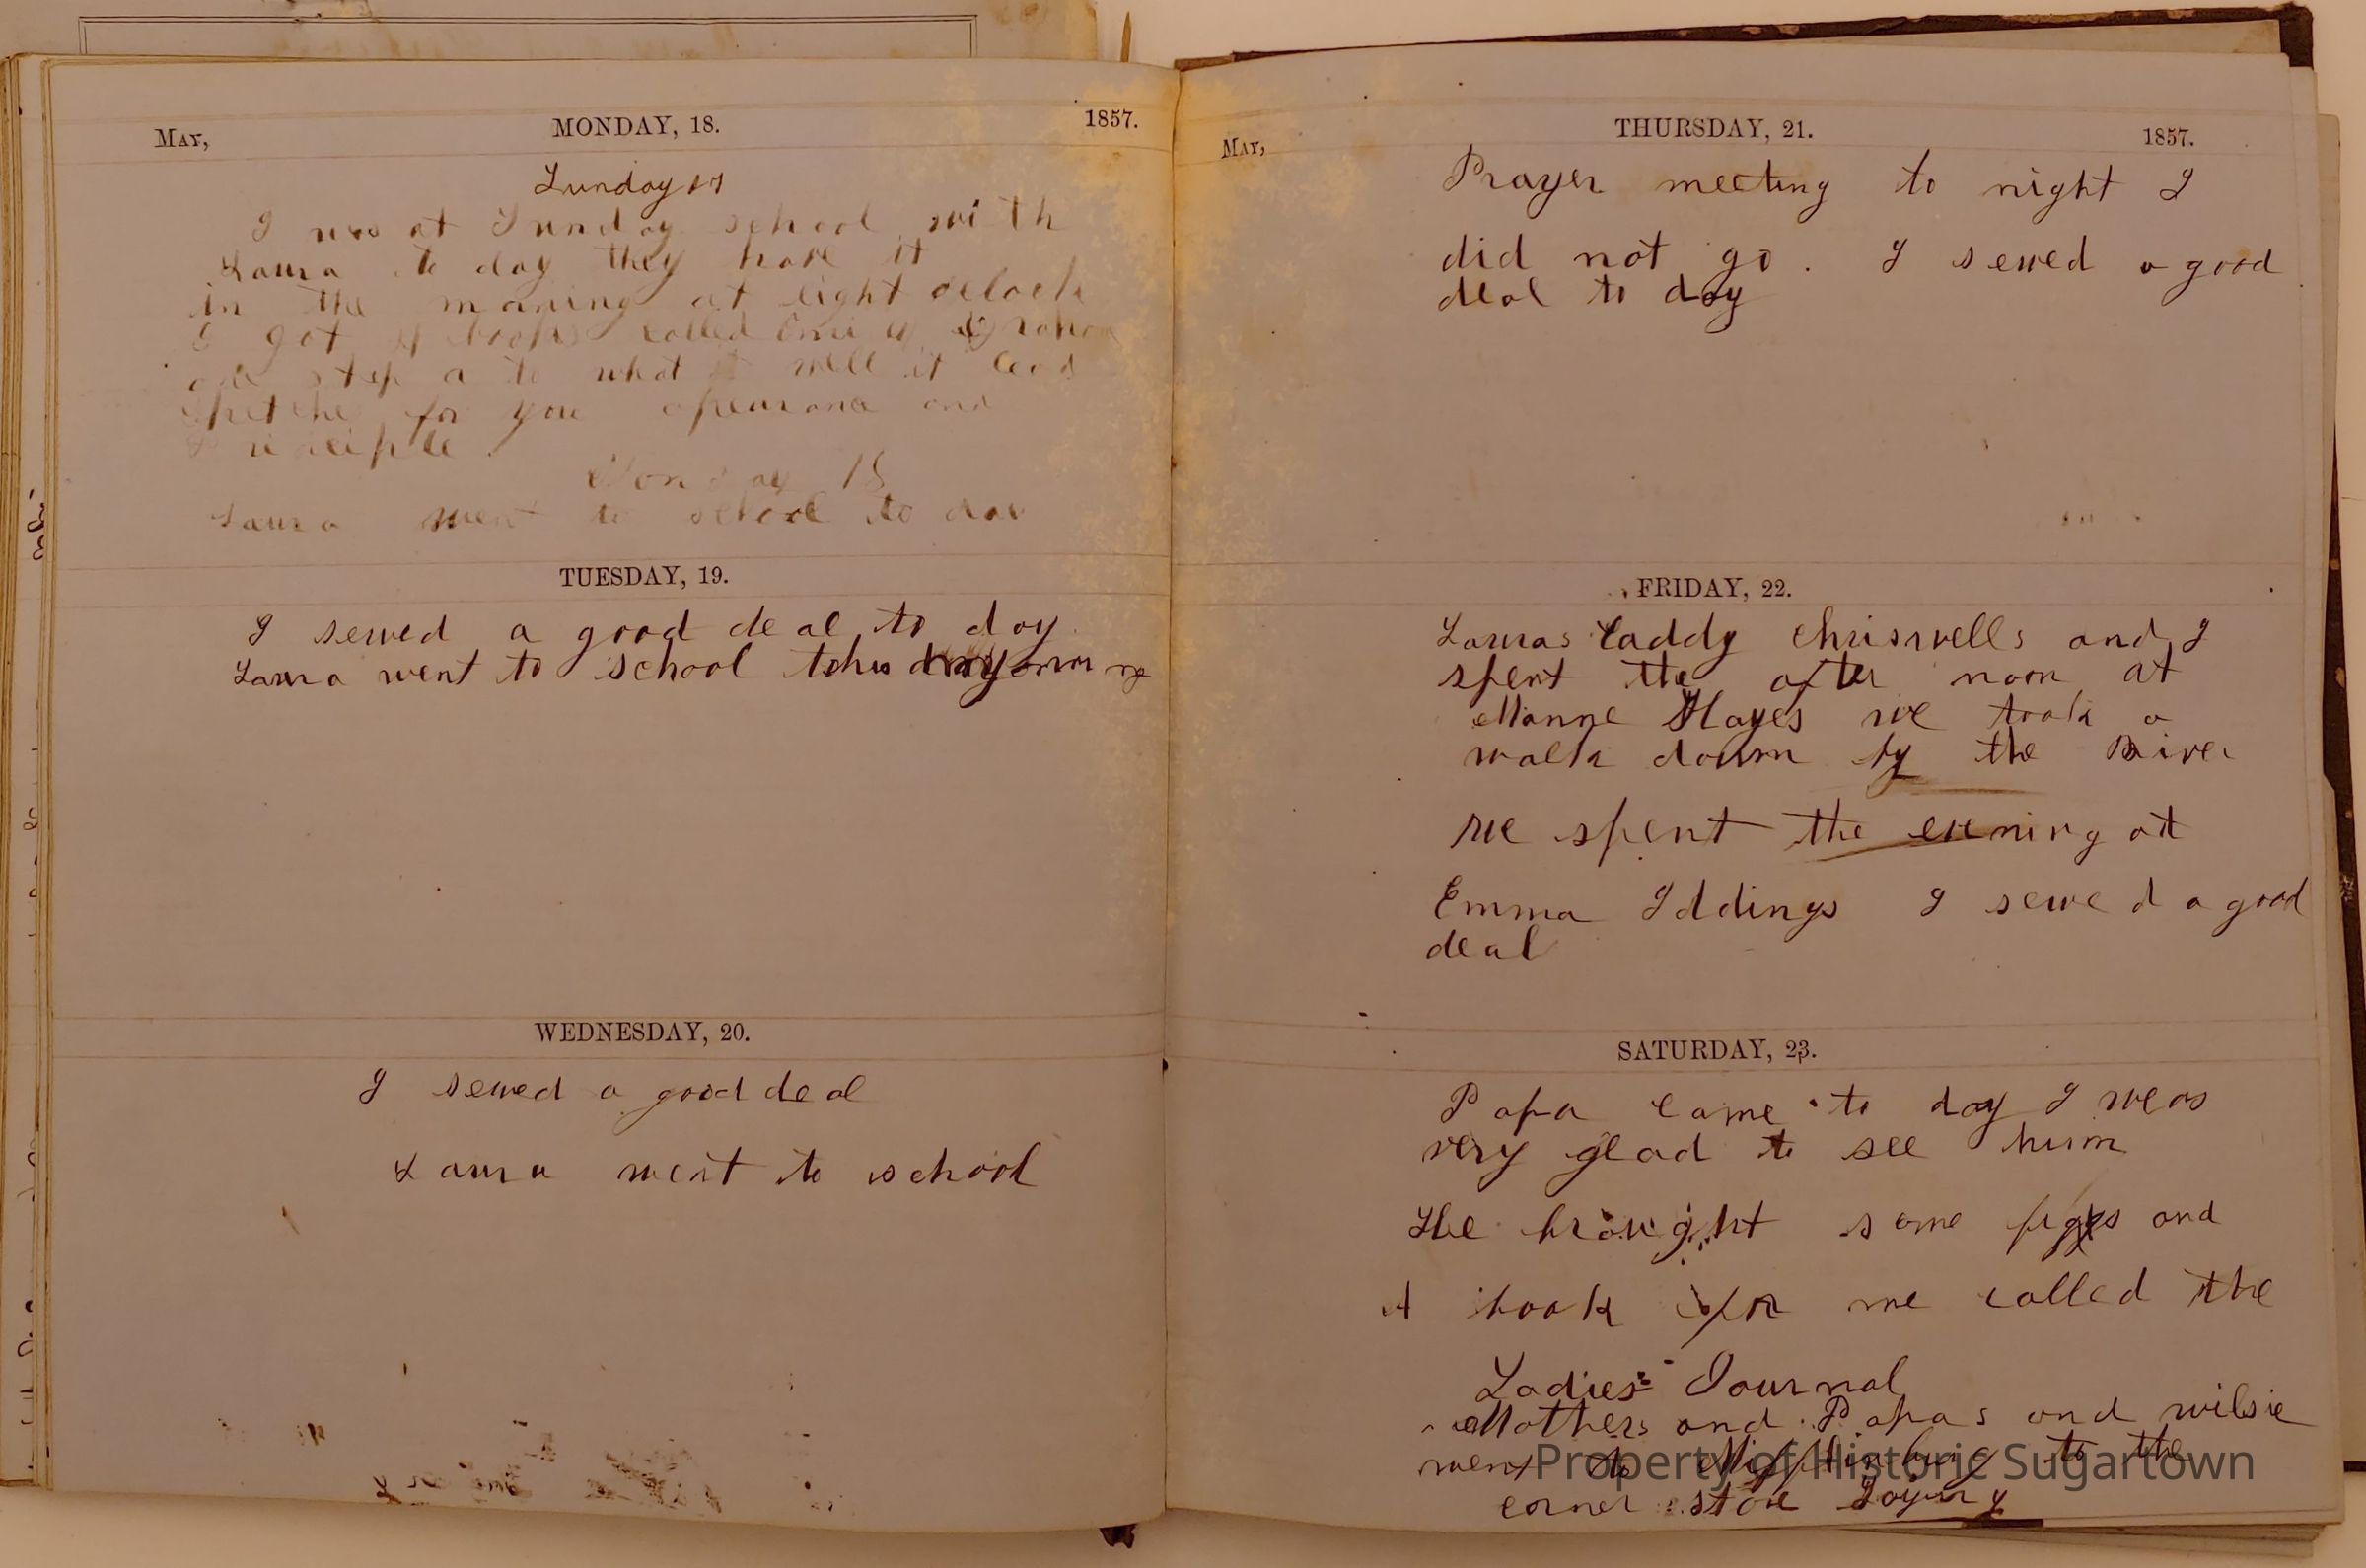 May,
MONDAY, 18.
1857.
Sunday 17
I was at Sunday school with
Laura to day they have it
in the morning at eight oclock
I got books called
one step a to what will it lead
for you apearance and
Principle.
Monday 18
Laura went to school to day
TUESDAY, 19.
I sewed a good deal to day
Laura went to school this morning
WEDNESDAY, 20.
I sewed a good deal
Laura went to school
May,
THURSDAY, 21.
1857.
Prayer meeting to night I
did not go. I sewed a good
deal to day
FRIDAY, 22.
Lauras Caddy Chriswells and I
spent the after noon at
Manne Hayes we took a
walk down by the River
we spent the evening at
Emma Iddings I sewed a good
deal
SATURDAY, 23.
Papa came to day I weas
very glad to see him
He brought some figs and
A book for me called the
Ladies Journal
Mothers and Papas and wilsie
went to Mifflinburg to the
corner stone Laying
Property of Historic Sugartown